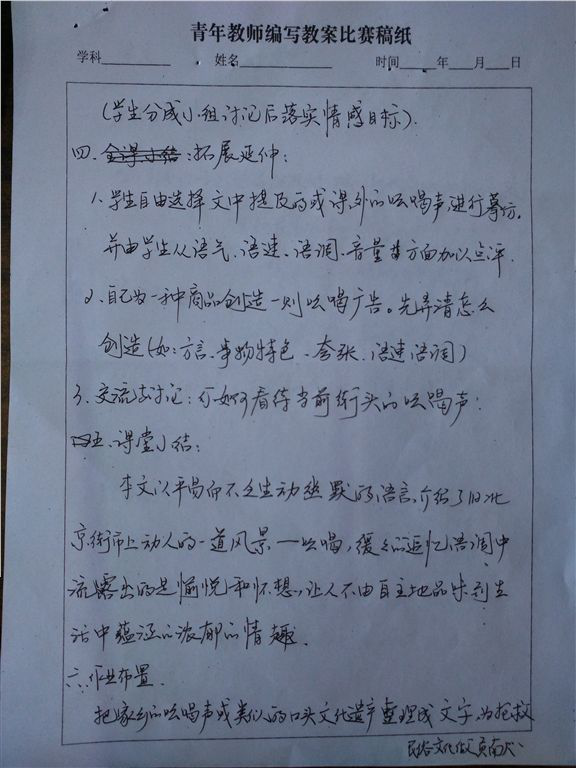 青年教师编写教案比赛稿纸
学科 姓名 时间 年 月 日
(学生分成小组讨论后落实情感目标).
四.全课小结:拓展延伸:
1.学生自由选择文中提及的或课外的吆喝声进行摹仿.
并由学生从语气、语速、语调、音量等方面加以点评.
2.自己为一种商品创造一则吆喝广告。先弄清怎么
创造(如:方言、事物特色、夸张、语速语调)
3.交流与讨论:你如何看待当前街头的吆喝声:
五.课堂小结:
本文以平易而不乏生动幽默的语言,介绍了旧北
京街市上动人的一道风景—吆喝,缓缓的追忆语调中
流露出的是愉悦和怀想,让人不由自主地品味到生
活中蕴涵的浓郁的情趣.
六.作业布置.
把家乡的吆喝声或类似的口头文化遗产整理成文字,为抢救
民俗文化做贡献